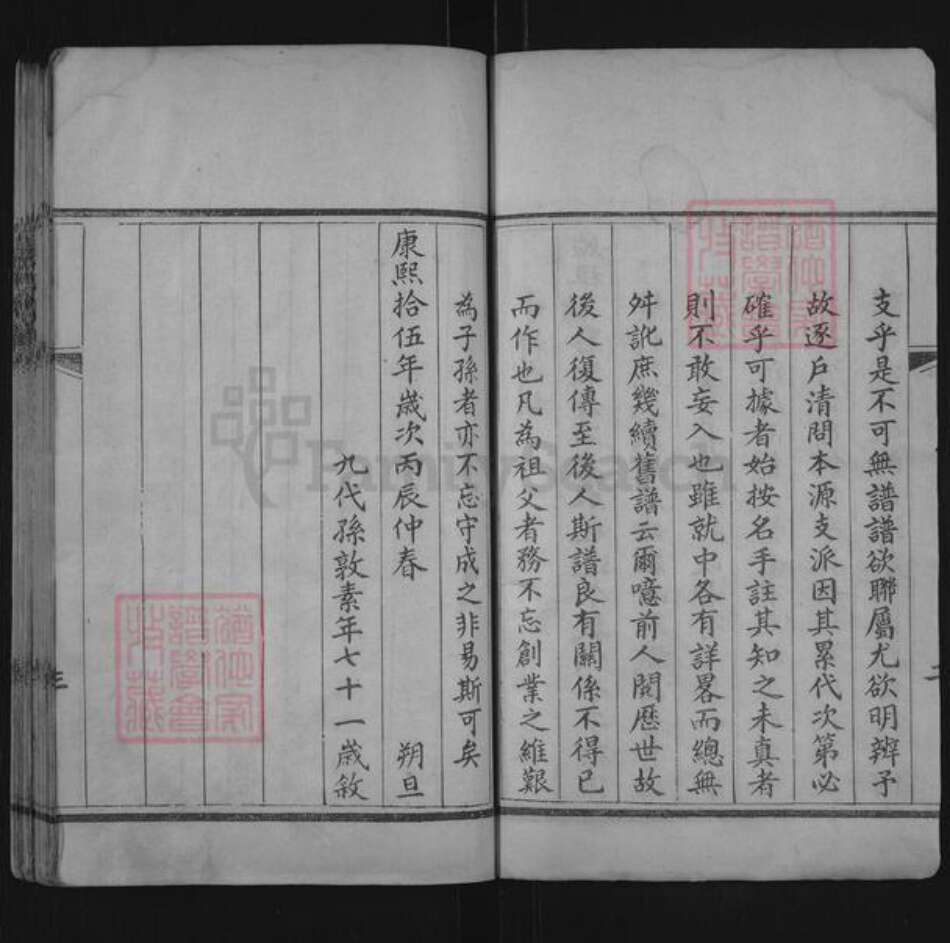 支乎是不可無譜譜欲聯屬尤欲明辨予
故逐戶清問本源支派因其累代次第必
確乎可據者始按名手註其知之未真者
則不敢妄入也雖就中各有詳畧而總無
舛訛庶幾續舊譜云爾噫前人閱歷世故
後人復傳至後人斯譜良有關係不得已
而作也凡為祖父者務不忘創業之維艱
為子孫者亦不忘守成之非易斯可矣
康熙拾伍年歲次丙辰仲春 朔旦
九代孫敦素年七十一歲敘
二
三
FamilySearch